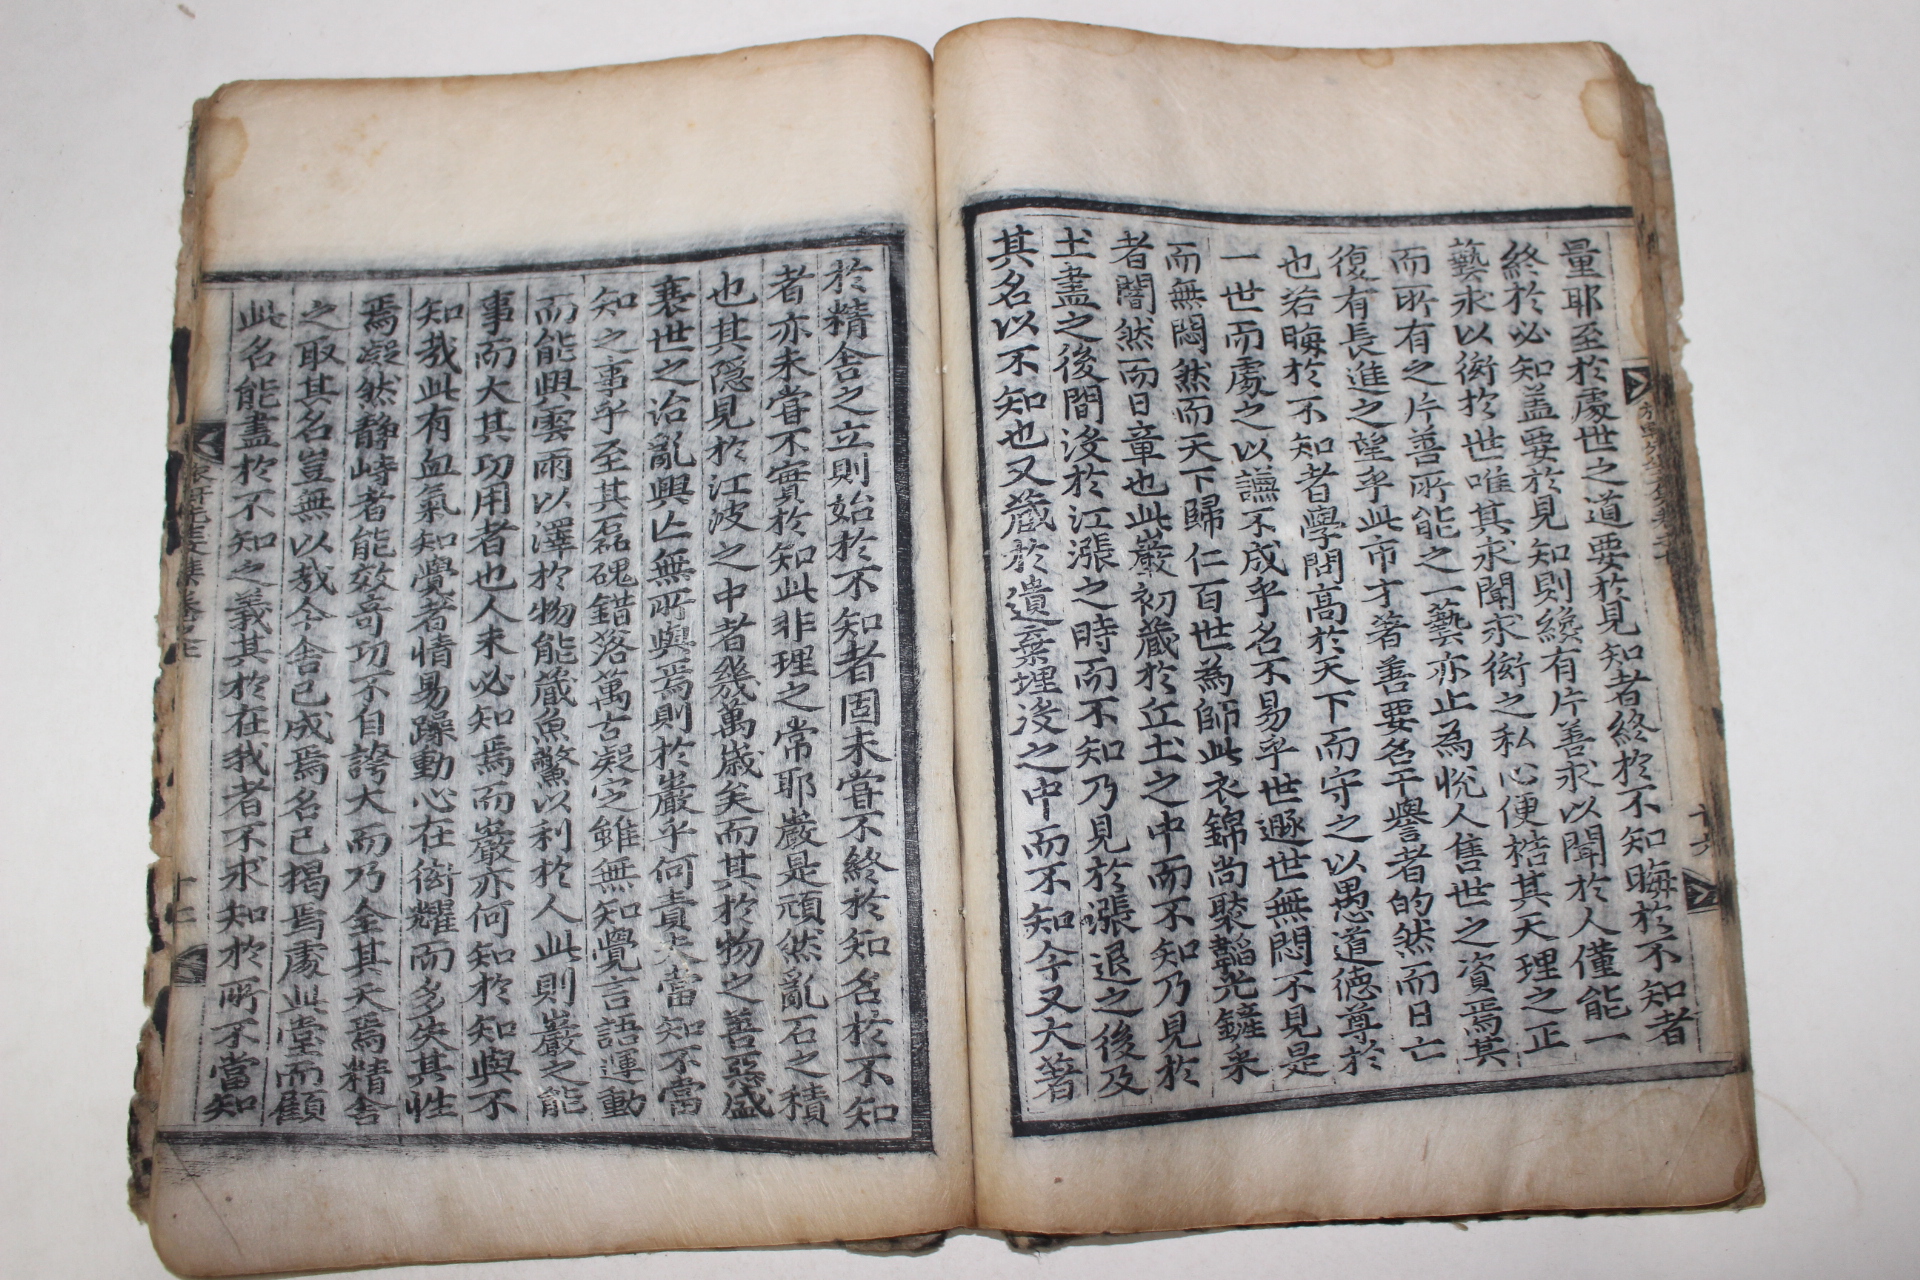 量耶至於處世之道要於見知者終於不知晦於不知者
終於必知盖要於見知則纔有片善求以聞於人僅能一
藝求以衒於世唯其求聞求衒之私心便梏其天理之正
而所有之片善所能之一藝亦止為悅人售世之資焉其
復有長進之望乎此市才著善要名干譽者的然而日亡
也若晦於不知者學問高於天下而守之以愚道德尊於
一世而處之以謙不成乎名不易乎世遯世無悶不見是
而無悶然而天下歸仁百世為師此衣錦尚褧韜光鏟采
者闇然而日章也此巖初藏於丘土之中而不知乃見於
土盡之後間沒於江漲之時而不知乃見於漲退之後及
其名以不知也又藏於遺棄埋沒之中而不知今又大著
於精舍之立則始於不知者固未嘗不終於知名於不知
者亦未嘗不實於知此非理之常耶巖是頑然亂石之積
也其隱見於江波之中者幾萬歲矣而其於物之善惡盛
衰世之治亂興亡無所與焉則於巖乎何責夫當知不當
知之事乎至其磊磈錯落萬古凝定雖無知覺言語運動
而能興雲雨以澤於物能藏魚鱉以利於人此則巖之能
事而大其功用者也人未必知焉而巖亦何知於知與不
知哉此有血氣知覺者情易躁動心在衒耀而多失其性
焉凝然靜峙者能效奇功不自誇大而乃全其天焉精舍
之取其名豈無以哉今舍已成焉名已揭焉處此堂而顧
此名能盡於不知之義其於在我者不求知於所不當知
十七